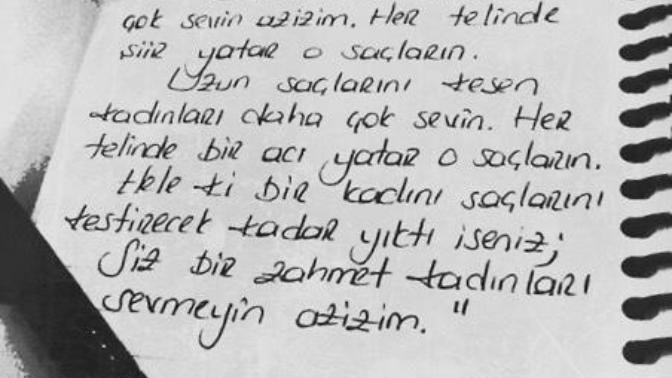 çok sevin azizim. Her telinde
şiir yatar o saçların.
Uzun saçlarını kesen
kadınları daha çok sevin. Her
telinde bir acı yatar o saçların.
Hele ki bir kadını saçlarını
kestirecek kadar yıktı iseniz;
Siz bir zahmet kadınları
sevmeyin azizim."